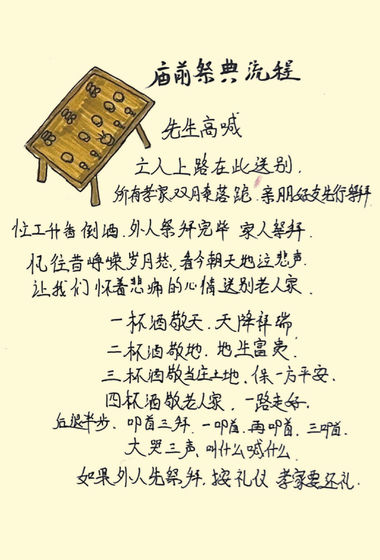 庙前祭典流程
先生高喊
亡人上路在此送别.
所有孝家双落跪. 亲朋好友先行祭拜
忙工升香倒酒. 外人祭拜完毕 家人祭拜.
忆往昔峥嵘岁月愁, 看今朝天地泣悲声.
让我们怀着悲痛的心情送别老人家.
一杯酒敬天. 天降祥瑞
二杯酒敬地. 地生富贵
三杯酒敬当庄土地, 保一方平安.
四杯酒敬老人家, 一路走好.
后退半步. 叩首三拜. 一叩首. 再叩首. 三叩首.
大哭三声、叫什么喊什么
如果外人先祭拜. 按礼仪 孝家要还礼.